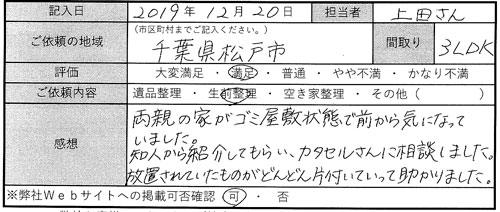 記入日 2019年12月20日 担当者 上田さん
ご依頼の地域 (市区町村までご記入ください。) 間取り 3LDK
千葉県松戸市
評価 大変満足 ・ 満足 ・ 普通 ・ やや不満 ・ かなり不満
ご依頼内容 遺品整理 ・ 生前整理 ・ 空き家整理 ・ その他 ( )
感想 両親の家がゴミ屋敷状態で前から気になって
いました。
知人から紹介してもらい、カタセルさんに相談しました。
放置されていたものがどんどん片付いていって助かりました。
※弊社Webサイトへの掲載可否確認 可 ・ 否